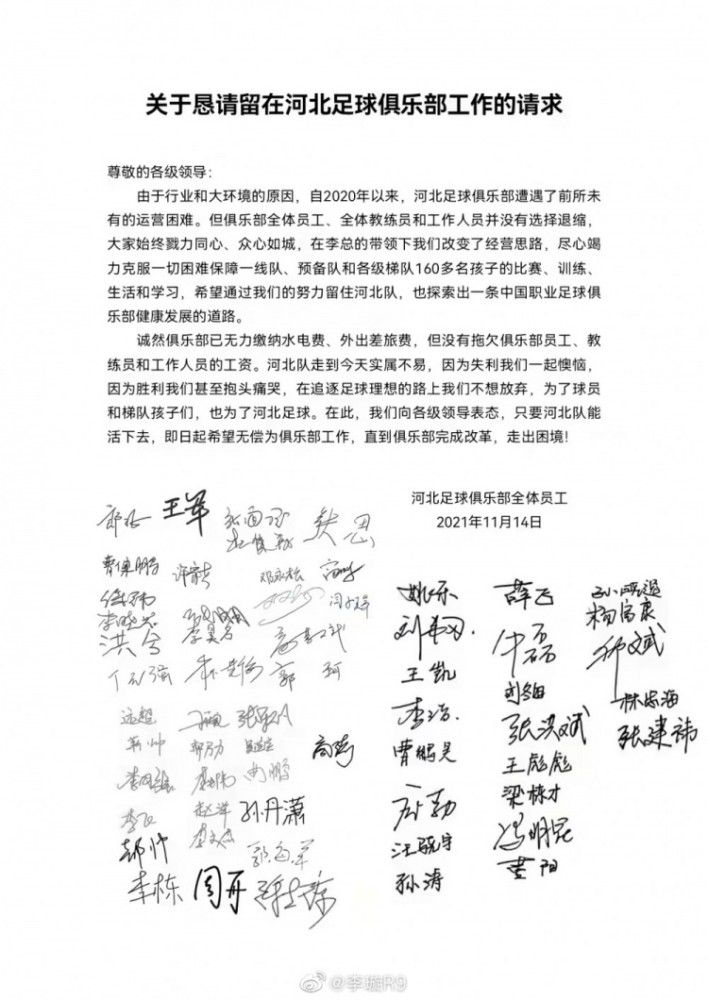 关于恳请留在河北足球俱乐部工作的请求
尊敬的各级领导：
由于行业和大环境的原因，自2020年以来，河北足球俱乐部遭遇了前所未
有的运营困难。但俱乐部全体员工、全体教练员和工作人员并没有选择退缩，
大家始终戮力同心、众心如城，在李总的带领下我们改变了经营思路，尽心竭
力克服一切困难保障一线队、预备队和各级梯队160多名孩子的比赛、训练、
生活和学习，希望通过我们的努力留住河北队，也探索出一条中国职业足球俱
乐部健康发展的道路。
诚然俱乐部已无力缴纳水电费、外出差旅费，但没有拖欠俱乐部员工、教
练员和工作人员的工资。河北队走到今天实属不易，因为失利我们一起懊恼，
因为胜利我们甚至抱头痛哭，在追逐足球理想的路上我们不想放弃，为了球员
和梯队孩子们，也为了河北足球。在此，我们向各级领导表态，只要河北队能
活下去，即日起希望无偿为俱乐部工作，直到俱乐部完成改革，走出困境！
河北足球俱乐部全体员工
2021年11月14日
王军
曹保鹏
姚乐
薛飞
杨富康
李晓芯
洪兮
王凯
牛磊
郭 珂
林忠海
李浩
张洪斌
张建祎
曹鹏昊
王彪彪
高奇
梁栋才
赵洋
孙丹潇
冯明昆
汪骁宇
黄阳
郝帅
郭海军
孙涛
李栋
周开
@李璇R9